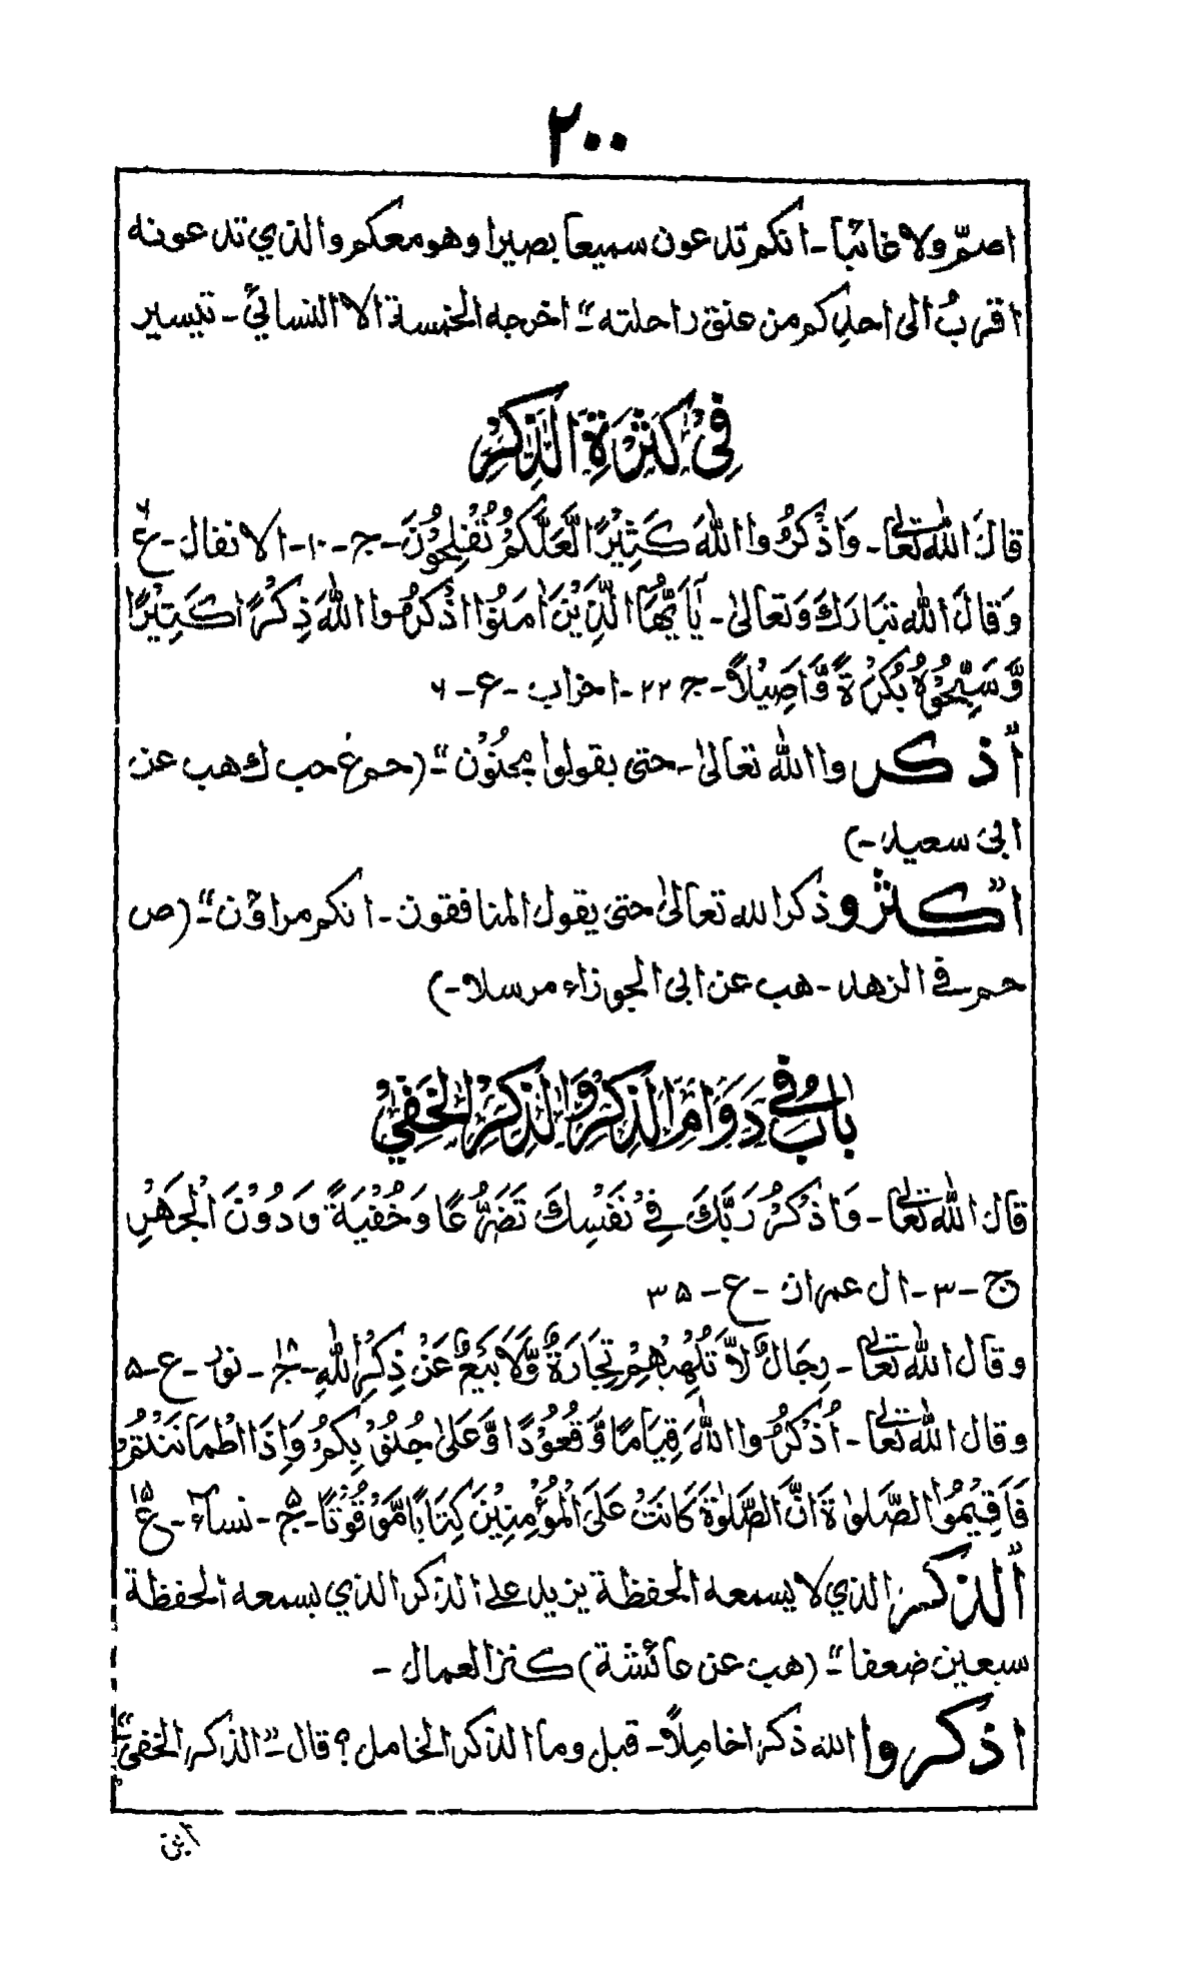 ۲۰۰
اصمّ ولا غائبا ـ انكم تدعون سميعا بصيرا وهو معكم والذي تدعونه
اقربُ الى احدِكم من عنق راحلته" ـ اخرجه الخمسة الا النسائيؒ ـ تيسير
فِىْ كَثْرَةِ الذِّكْرِ
قالَ اللهُ تعالٰى ـ وَاذْكُرُوا اللهَ كَثِيْرًا لَّعَلَّكُمْ تُفْلِحُوْنَ ـ ج ـ ۱۰ ـ الانفال ـ ع ۶
وَقالَ الله تبارَكَ وَتعالىٰ ـ يٰٓاَيُّهَا الَّذِيْنَ اٰمَنُوا اذْكُرُوا اللهَ ذِكْرًا كَثِيْرًا
وَّسَبِّحُوْهُ بُكْرَةً وَّاَصِيْلًا ـ ج ۲۲ ـ احزاب ـ ع ـ ۶
اُذكروا الله تعالىٰ ـ حتى يقولوا مجنُوْن" ـ (حم ع حب ك هب عن
ابى سعيد ـ)
اكثرو ذكر الله تعالىٰ حتى يقول المنافقون ـ انكم مراؤن" ـ (ص
حم في الزهد ـ هب عن ابى الجوزاء مرسلا ـ)
بابُ فِي دَوَامِ الذِّكْرِ وَالذِّكْرِ الْخَفِيْ
قال اللهُ تعالٰى ـ وَاذْكُرْ رَبَّكَ فِيْ نَفْسِكَ تَضَرُّعًا وَخُفْيَةً وَدُوْنَ الْجَهْرِ
ج ـ ۳ ـ ال عمران ـ ع ـ ۳۵
وقال اللهُ تعالٰى ـ رِجَالٌ لَّا تُلْهِيْهِمْ تِجَارَةٌ وَّلَا بَيْعٌ عَنْ ذِكْرِ اللهِ ـ ج ۱۸ ـ نور ـ ع ـ ۵
وقال اللهُ تعالٰى ـ اُذْكُرُوا اللهَ قِيَامًا وَّقُعُوْدًا وَّعَلىٰ جُنُوْبِكُمْ وَاِذَا اطْمَأْنَنْتُمْ
فَاَقِيْمُوا الصَّلوٰةَ اِنَّ الصَّلوٰةَ كَانَتْ عَلَى الْمُؤْمِنِيْنَ كِتَابًا مَّوْقُوْتًا ـ ج ۵ ـ نساء ـ ع ۱۵
اَلذكر الذي لا يسمعه الحفظة يزيد على الذكر الذي يسمعه الحفظة
سبعين ضعفا" ـ (هب عن عائشة) كنز العمال ـ
اذكروا الله ذكرا خامِلًا ـ قيل وما الذكر الخامل؟ قال ـ "الذكر الخفي"